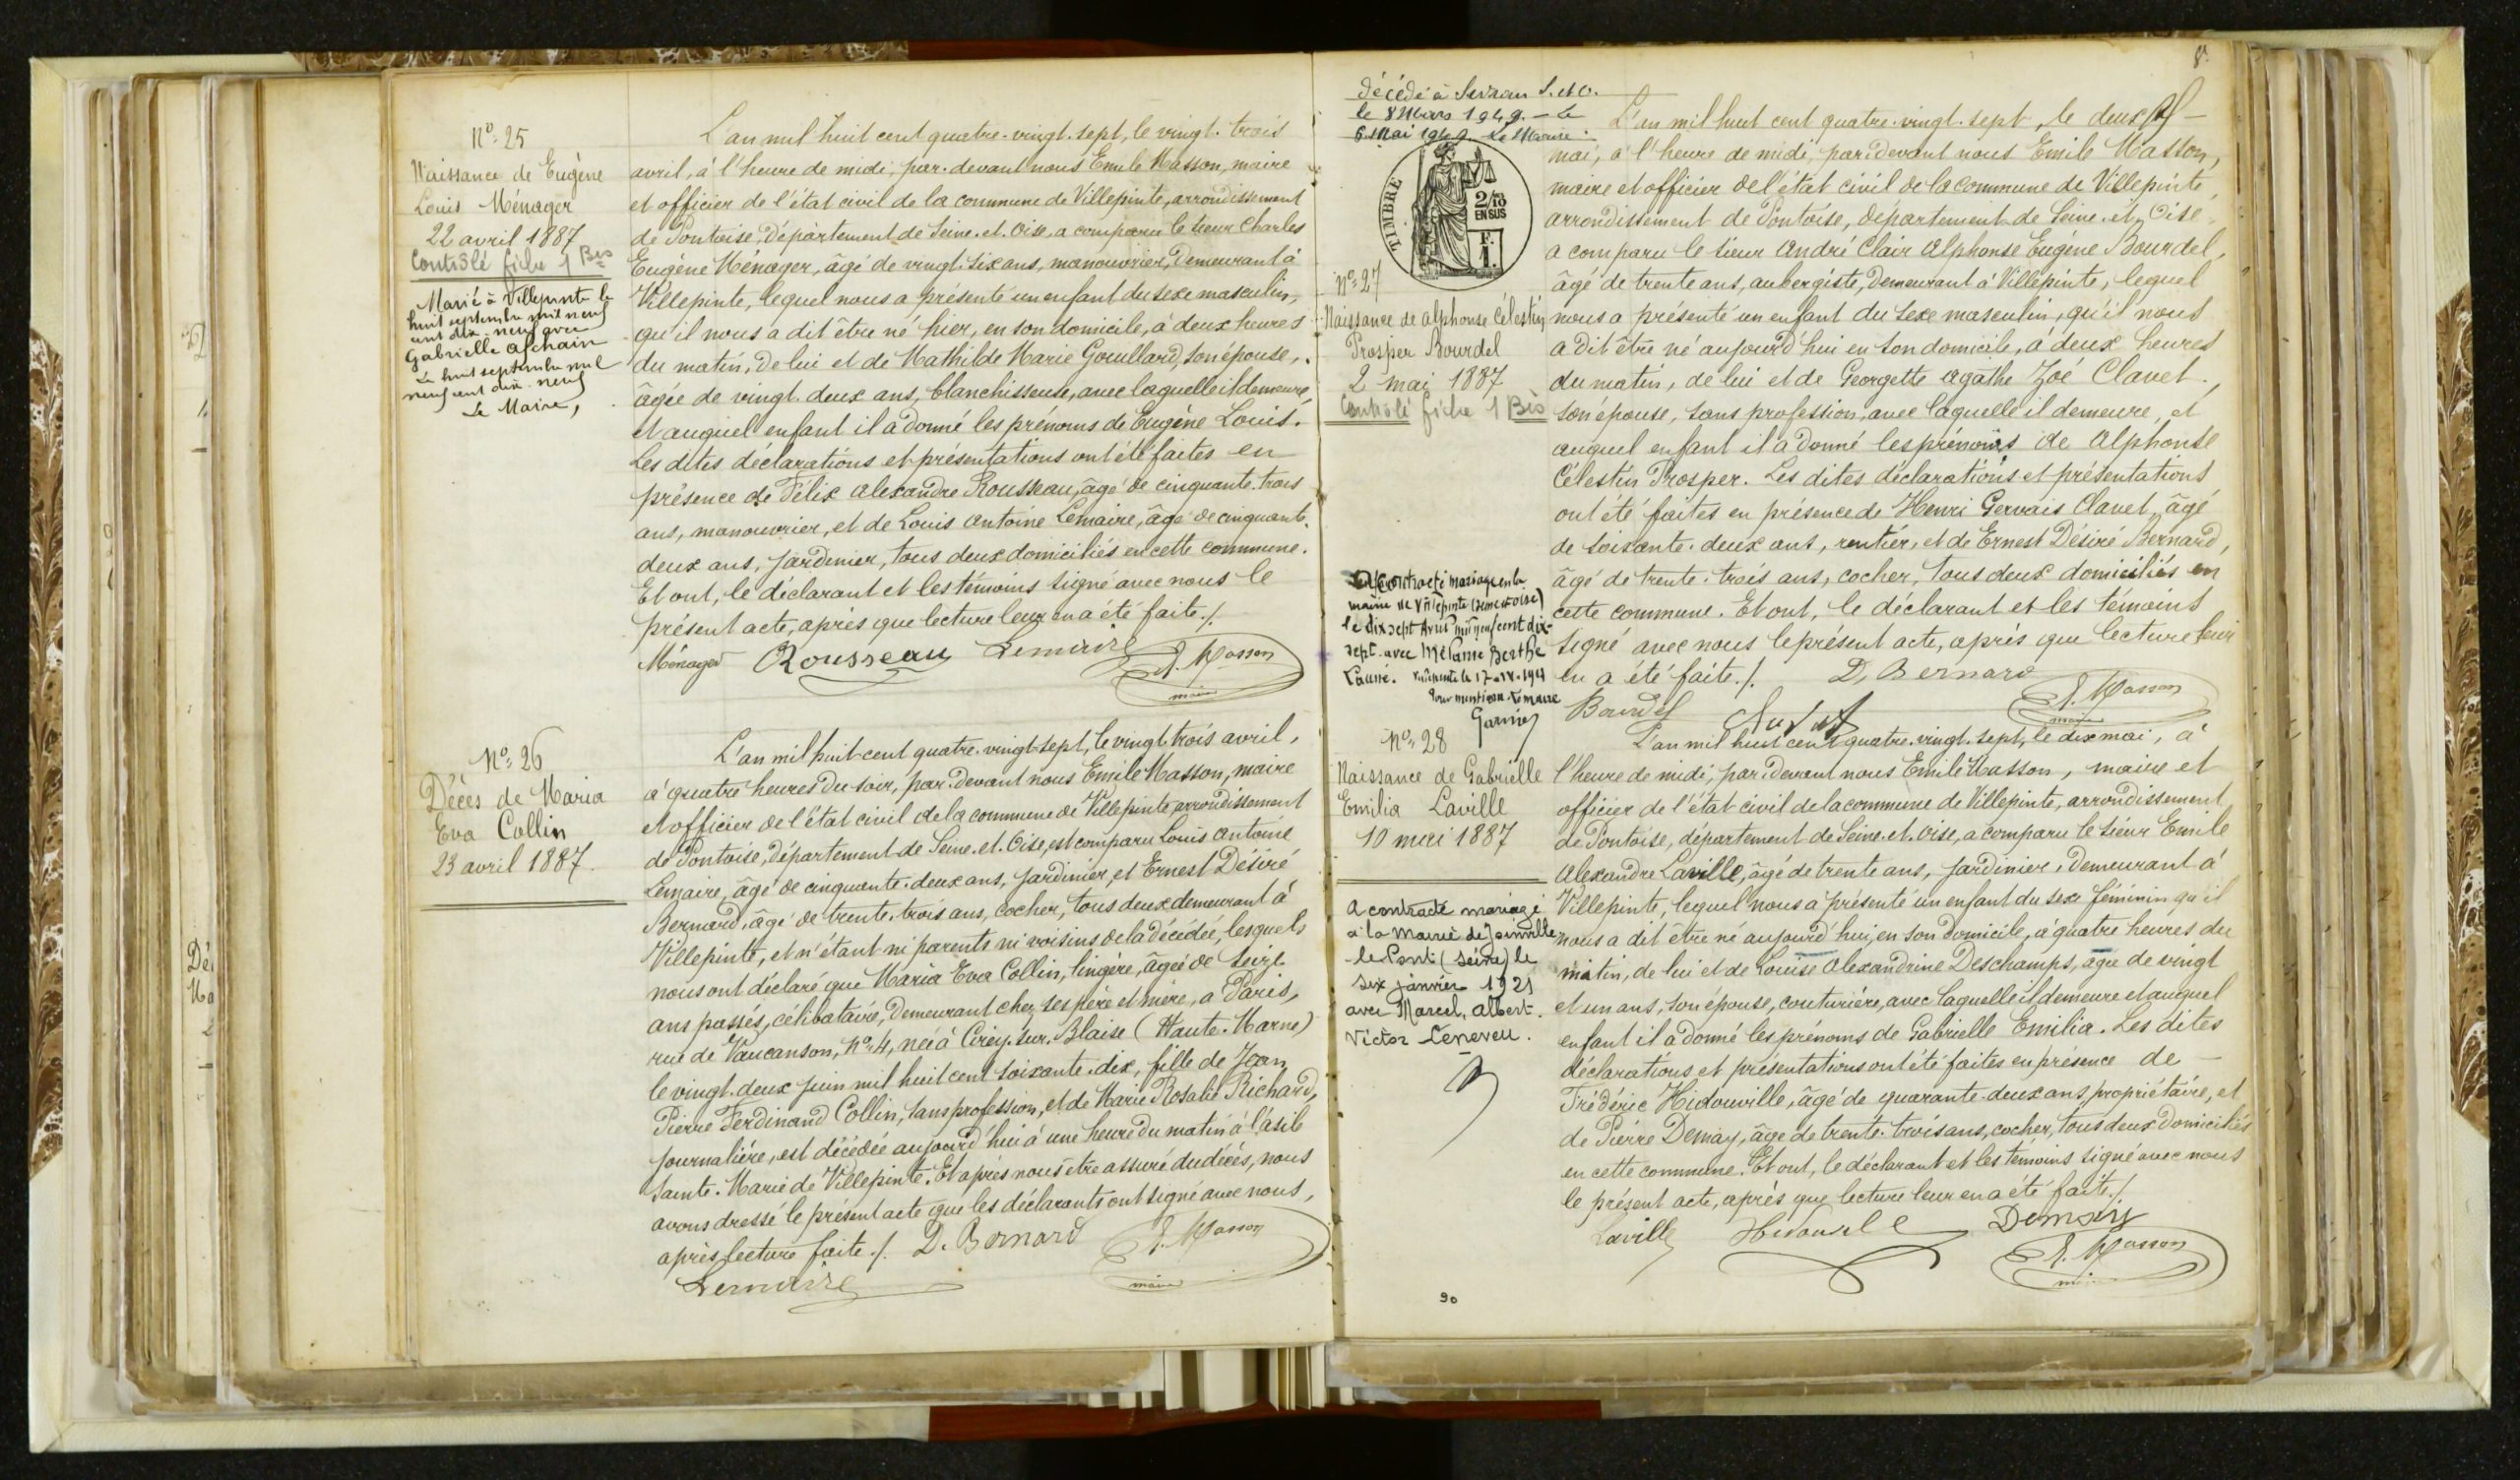 Nº 25
Naissance de Eugène
Louis Ménager
22 avril 1887
Contrôlé fiche 1 Bis
Marié à Villepinte le
huit septembre mil neuf
cent dix-neuf avec
Gabrielle
Le huit septembre mil
neuf cent dix-neuf
Le Maire,
L'an mil huit cent quatre-vingt-sept, le vingt-trois
avril, à l'heure de midi, par-devant nous Emile Masson, maire
et officier de l'état civil de la commune de Villepinte, arrondissement
de Pontoise, département de Seine-et-Oise, a comparu le sieur Charles
Eugène Ménager, âgé de vingt-six ans, manouvrier, demeurant à
Villepinte, lequel nous a présenté un enfant du sexe masculin,
qu'il nous a dit être né hier, en son domicile, à deux heures
du matin, de lui et de Mathilde Marie Gouillard, son épouse,
âgée de vingt-deux ans, blanchisseuse, avec laquelle il demeure,
et auquel enfant il a donné les prénoms de Eugène Louis.
Les dites déclarations et présentations ont été faites en
présence de Félix Alexandre Rousseau, âgé de cinquante-trois
ans, manouvrier, et de Louis Antoine Lemaire, âgé de cinquante-
deux ans, jardinier, tous deux domiciliés en cette commune.
Et ont, le déclarant et les témoins signé avec nous le
présent acte, après que lecture leur en a été faite./.
Ménager Rousseau Lemaire E. Masson
maire
Nº 26
Décès de Maria
Eva Collin
23 avril 1887.
L'an mil huit cent quatre-vingt-sept, le vingt-trois avril,
à quatre heures du soir, par-devant nous Emile Masson, maire
et officier de l'état civil de la commune de Villepinte arrondissement
de Pontoise, département de Seine-et-Oise, est comparu Louis Antoine
Lemaire, âgé de cinquante-deux ans, jardinier, et Ernest Désiré
Bernard, âgé de trente-trois ans, cocher, tous deux demeurant à
Villepinte, et n'étant ni parents ni voisins de la décédée, lesquels
nous ont déclaré que Maria Eva Collin, lingère, âgée de seize
ans passés, célibataire, demeurant chez ses père et mère, à Paris,
rue de Vaucanson, Nº 4, née à Cirey-sur-Blaise (Haute-Marne)
le vingt-deux juin mil huit cent soixante-dix, fille de Jean
Pierre Ferdinand Collin, sans profession, et de Marie Rosalie Richard,
journalière, est décédée aujourd'hui à une heure du matin à l'asile
Sainte-Marie de Villepinte. Et après nous être assuré du décès, nous
avons dressé le présent acte que les déclarants ont signé avec nous,
après lecture faite./. D. Bernard E. Masson
Lemaire maire
8.
décédé à Sevran S. et O.
le 8 Mars 1949. - Le
6 Mai 1949. Le Maire:
TIMBRE
2/10
EN SUS
F.
1.
Nº 27
Naissance de Alphonse Célestin
Prosper Bourdel
2 mai 1887
Contrôlé fiche 1 Bis
A contracté mariage en la
mairie de Villepinte (Seine et Oise)
le dix sept Avril mil neuf cent dix-
sept avec Mélanie Berthe
Villepinte le 17
Pour mention Le Maire
Garnier
L'an mil huit cent quatre-vingt-sept, le deux
mai, à l'heure de midi, par-devant nous Emile Masson,
maire et officier de l'état civil de la commune de Villepinte,
arrondissement de Pontoise, département de Seine-et-Oise,
a comparu le sieur André Clair Alphonse Eugène Bourdel,
âgé de trente ans, aubergiste, demeurant à Villepinte, lequel
nous a présenté un enfant du sexe masculin, qu'il nous
a dit être né aujourd'hui en son domicile, à deux heures
du matin, de lui et de Georgette Agathe Zoé Clavet,
son épouse, sans profession, avec laquelle il demeure, et
auquel enfant il a donné les prénoms de Alphonse
Célestin Prosper. Les dites déclarations et présentations
ont été faites en présence de Henri Gervais Clavet, âgé
de soixante-deux ans, rentier, et de Ernest Désiré Bernard,
âgé de trente-trois ans, cocher, tous deux domiciliés en
cette commune. Et ont, le déclarant et les témoins
signé avec nous le présent acte, après que lecture leur
en a été faite./. D. Bernard
Bourdel E. Masson
maire
Nº 28
Naissance de Gabrielle
Emilia Laville
10 mai 1887
A contracté mariage
à la Mairie de Joinville
le Pont (Seine) le
six janvier 1921
avec Marcel, Albert.
Victor Leneveu.
L'an mil huit cent quatre-vingt-sept, le dix mai, à
l'heure de midi, par-devant nous Emile Masson, maire et
officier de l'état civil de la commune de Villepinte, arrondissement
de Pontoise, département de Seine-et-Oise, a comparu le sieur Emile
Alexandre Laville, âgé de trente ans, jardinier, demeurant à
Villepinte, lequel nous a présenté un enfant du sexe féminin qu'il
nous a dit être né aujourd'hui, en son domicile, à quatre heures du
matin, de lui et de Louise Alexandrine Deschamps, âgée de vingt
et un ans, son épouse, couturière, avec laquelle il demeure et auquel
enfant il a donné les prénoms de Gabrielle Emilia. Les dites
déclarations et présentations ont été faites en présence de
Frédéric Hidouville, âgé de quarante-deux ans, propriétaire, et
de Pierre Demay, âgé de trente-trois ans, cocher, tous deux domiciliés
en cette commune. Et ont, le déclarant et les témoins signé avec nous
le présent acte, après que lecture leur en a été faite./.
Laville Demay
E. Masson
90